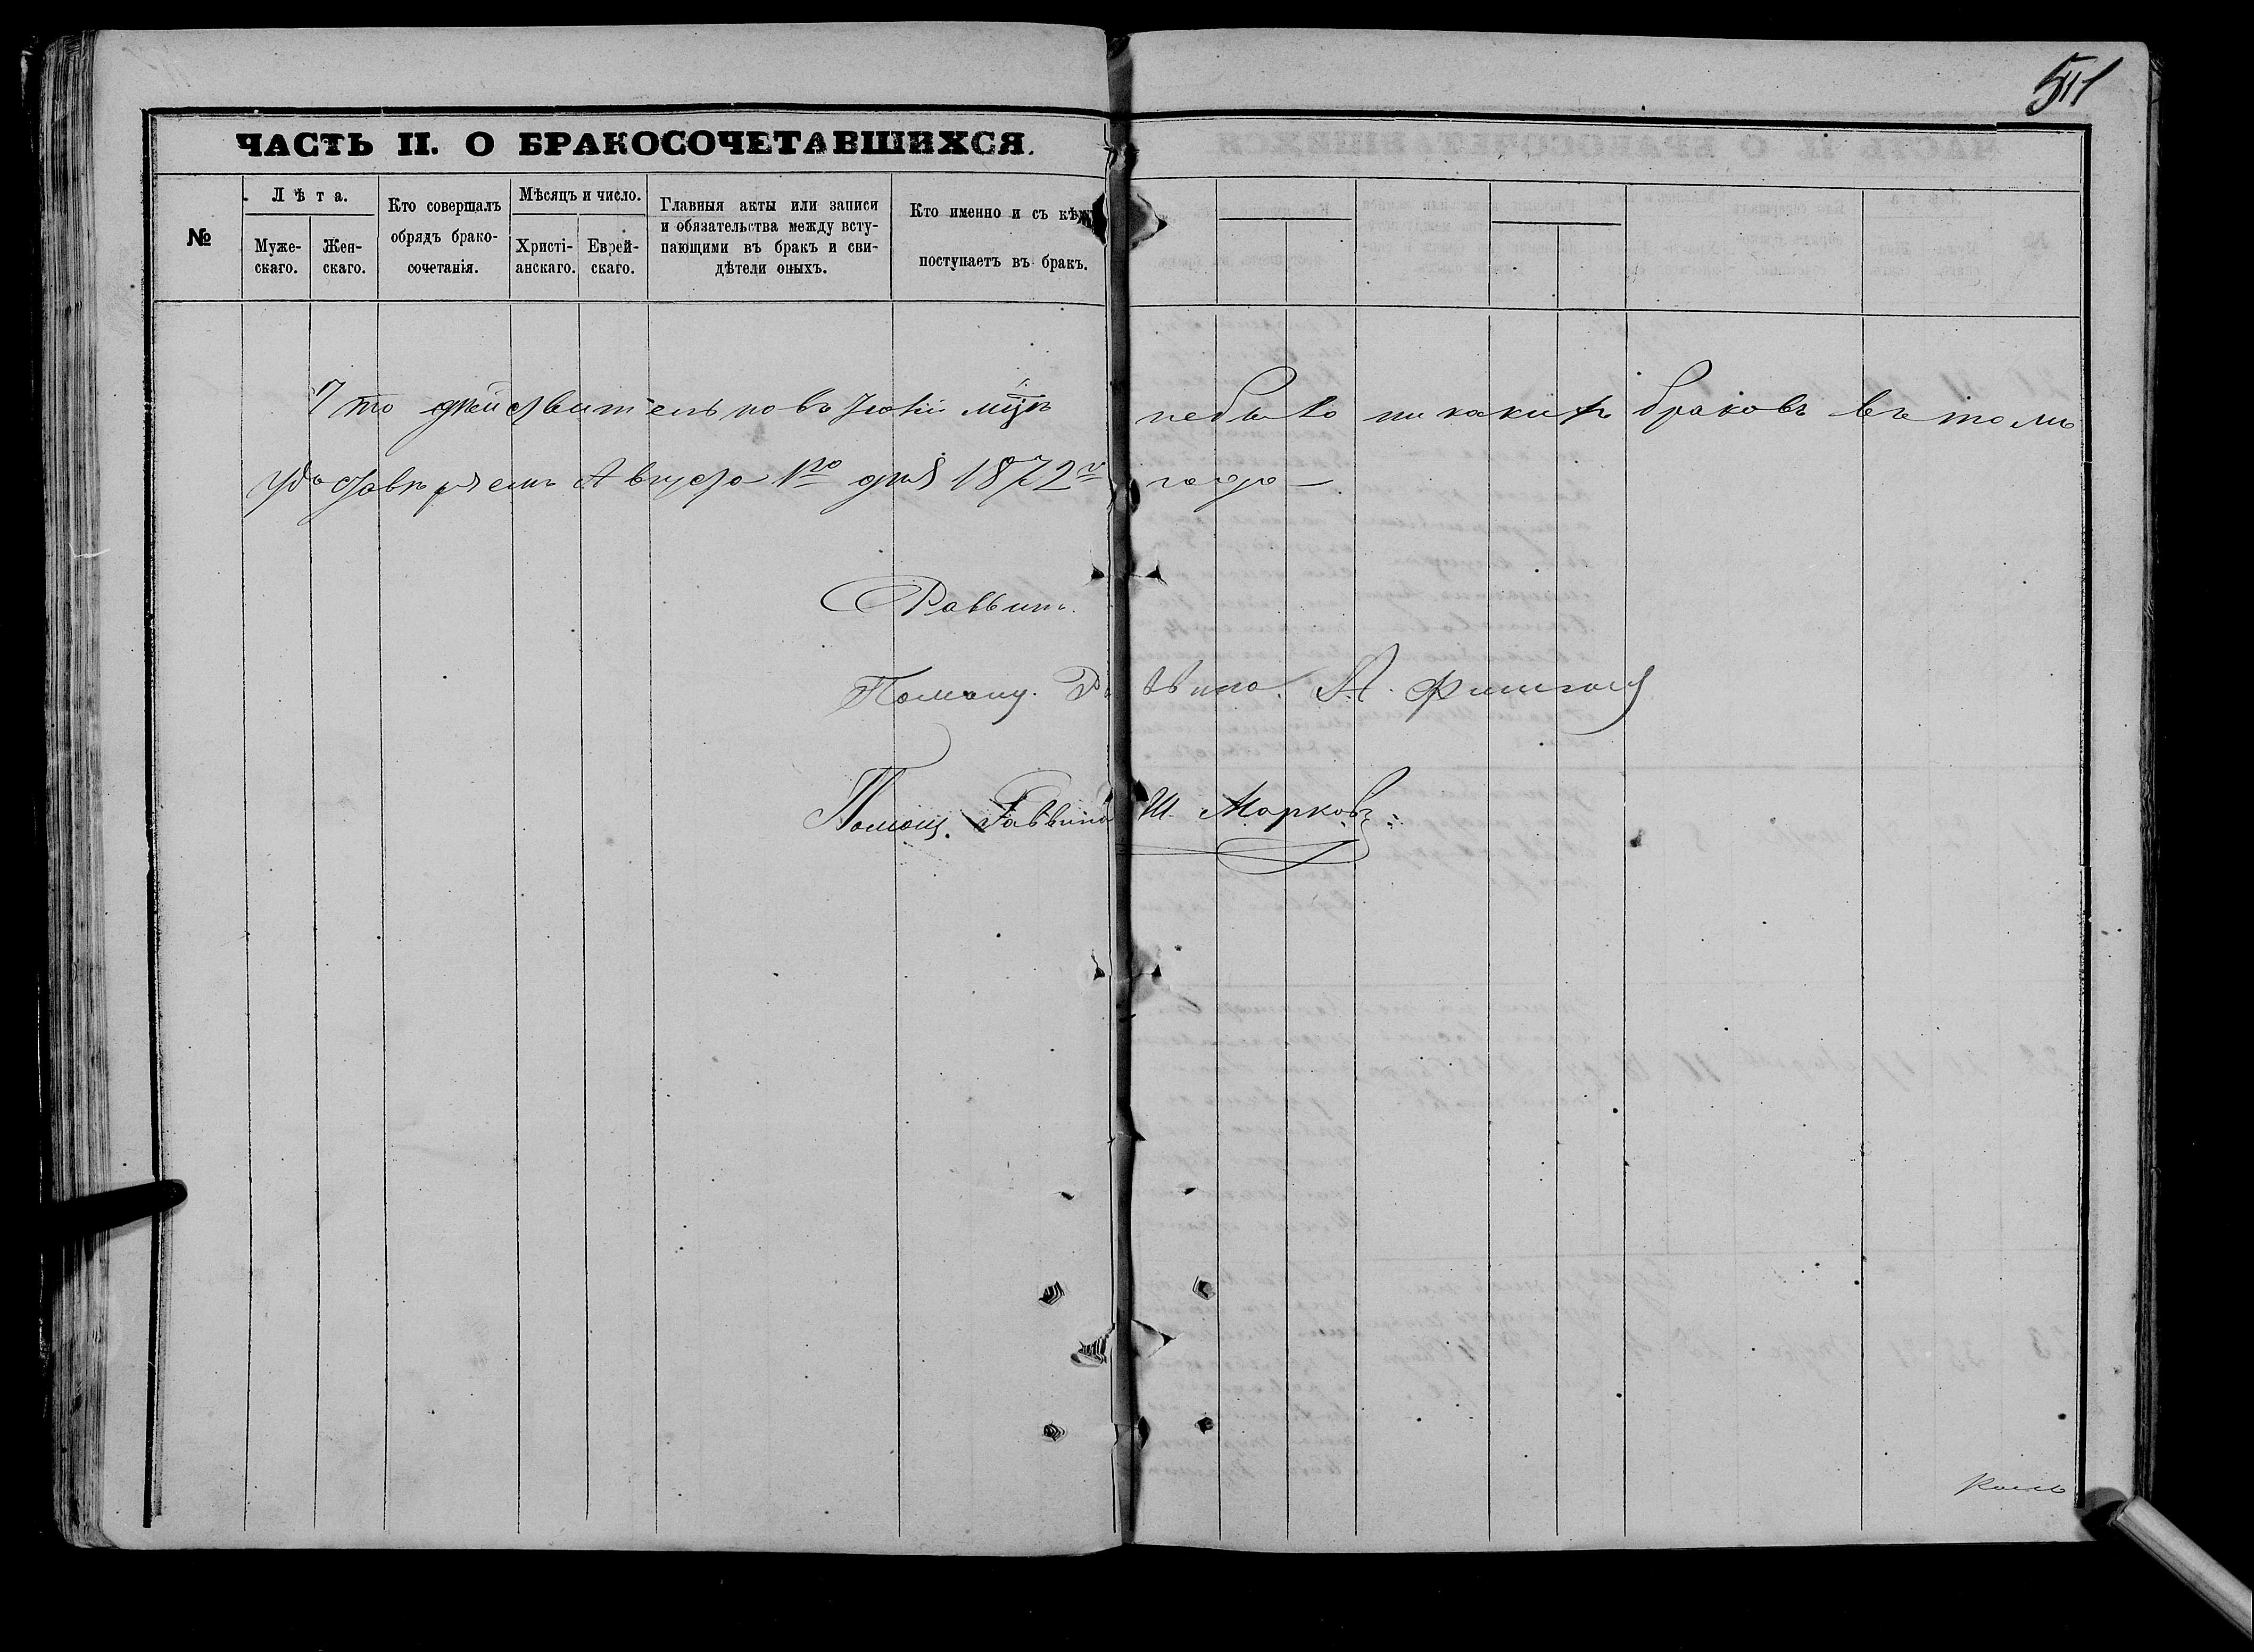 511
ЧАСТЬ II. О БРАКОСОЧЕТАВШИХСЯ.
№
Лѣта.
Муже-
скаго.
Жен-
скаго.
Кто совершалъ
обрядъ брако-
сочетанія.
Мѣсяцъ и число.
Христі-
анскаго.
Еврей-
скаго.
Главныя акты или записи
и обязательства между всту-
пающими въ бракъ и сви-
дѣтели оныхъ.
Кто именно и съ кѣмъ
поступаетъ въ бракъ.
Что дѣйствительно въ Іюлѣ м-цѣ небыло никакихъ браковъ въ томъ
удостовѣряемъ Августа 1го дня 1872го года —
Раввинъ.
Помощ. Раввина. А.
Помощ. Раввина Ш. Марковъ